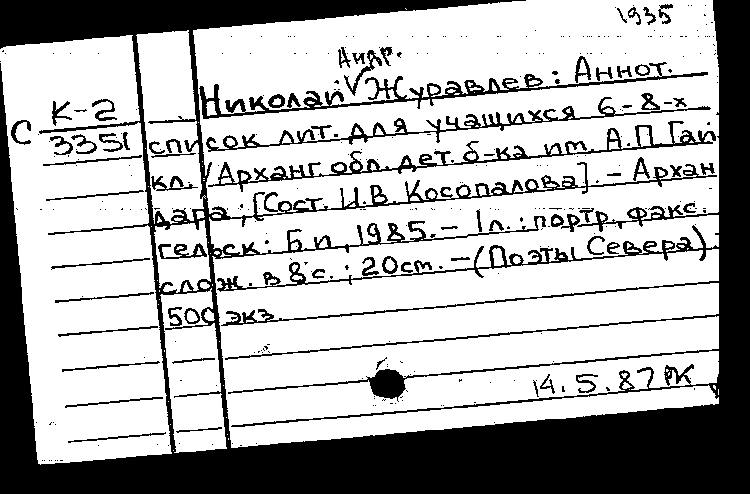 1935
Андр.
Николай Журавлев: Аннот.
С К-2
3351
список лит. для учащихся 6-8-х
кл. / Арханг. обл. дет. б-ка им. А.П. Гай
дара ; [Сост. И.В. Косопалова]. - Архан
гельск : Б.и., 1985. - 1л. : портр., факс.
слож. в 8с. ; 20см. - (Поэты Севера).
500 экз.
14.5.87